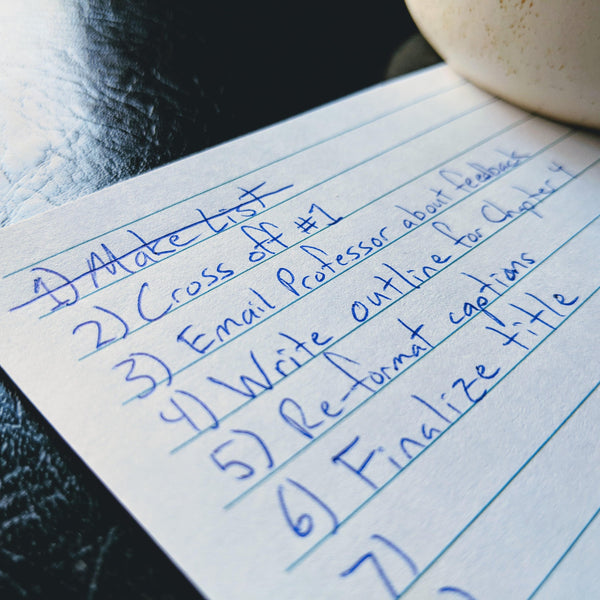 1) Make List
2) Cross off #1
3) Email Professor about feedback
4) Write outline for Chapter 4
5) Re-format captions
6) Finalize title
7)